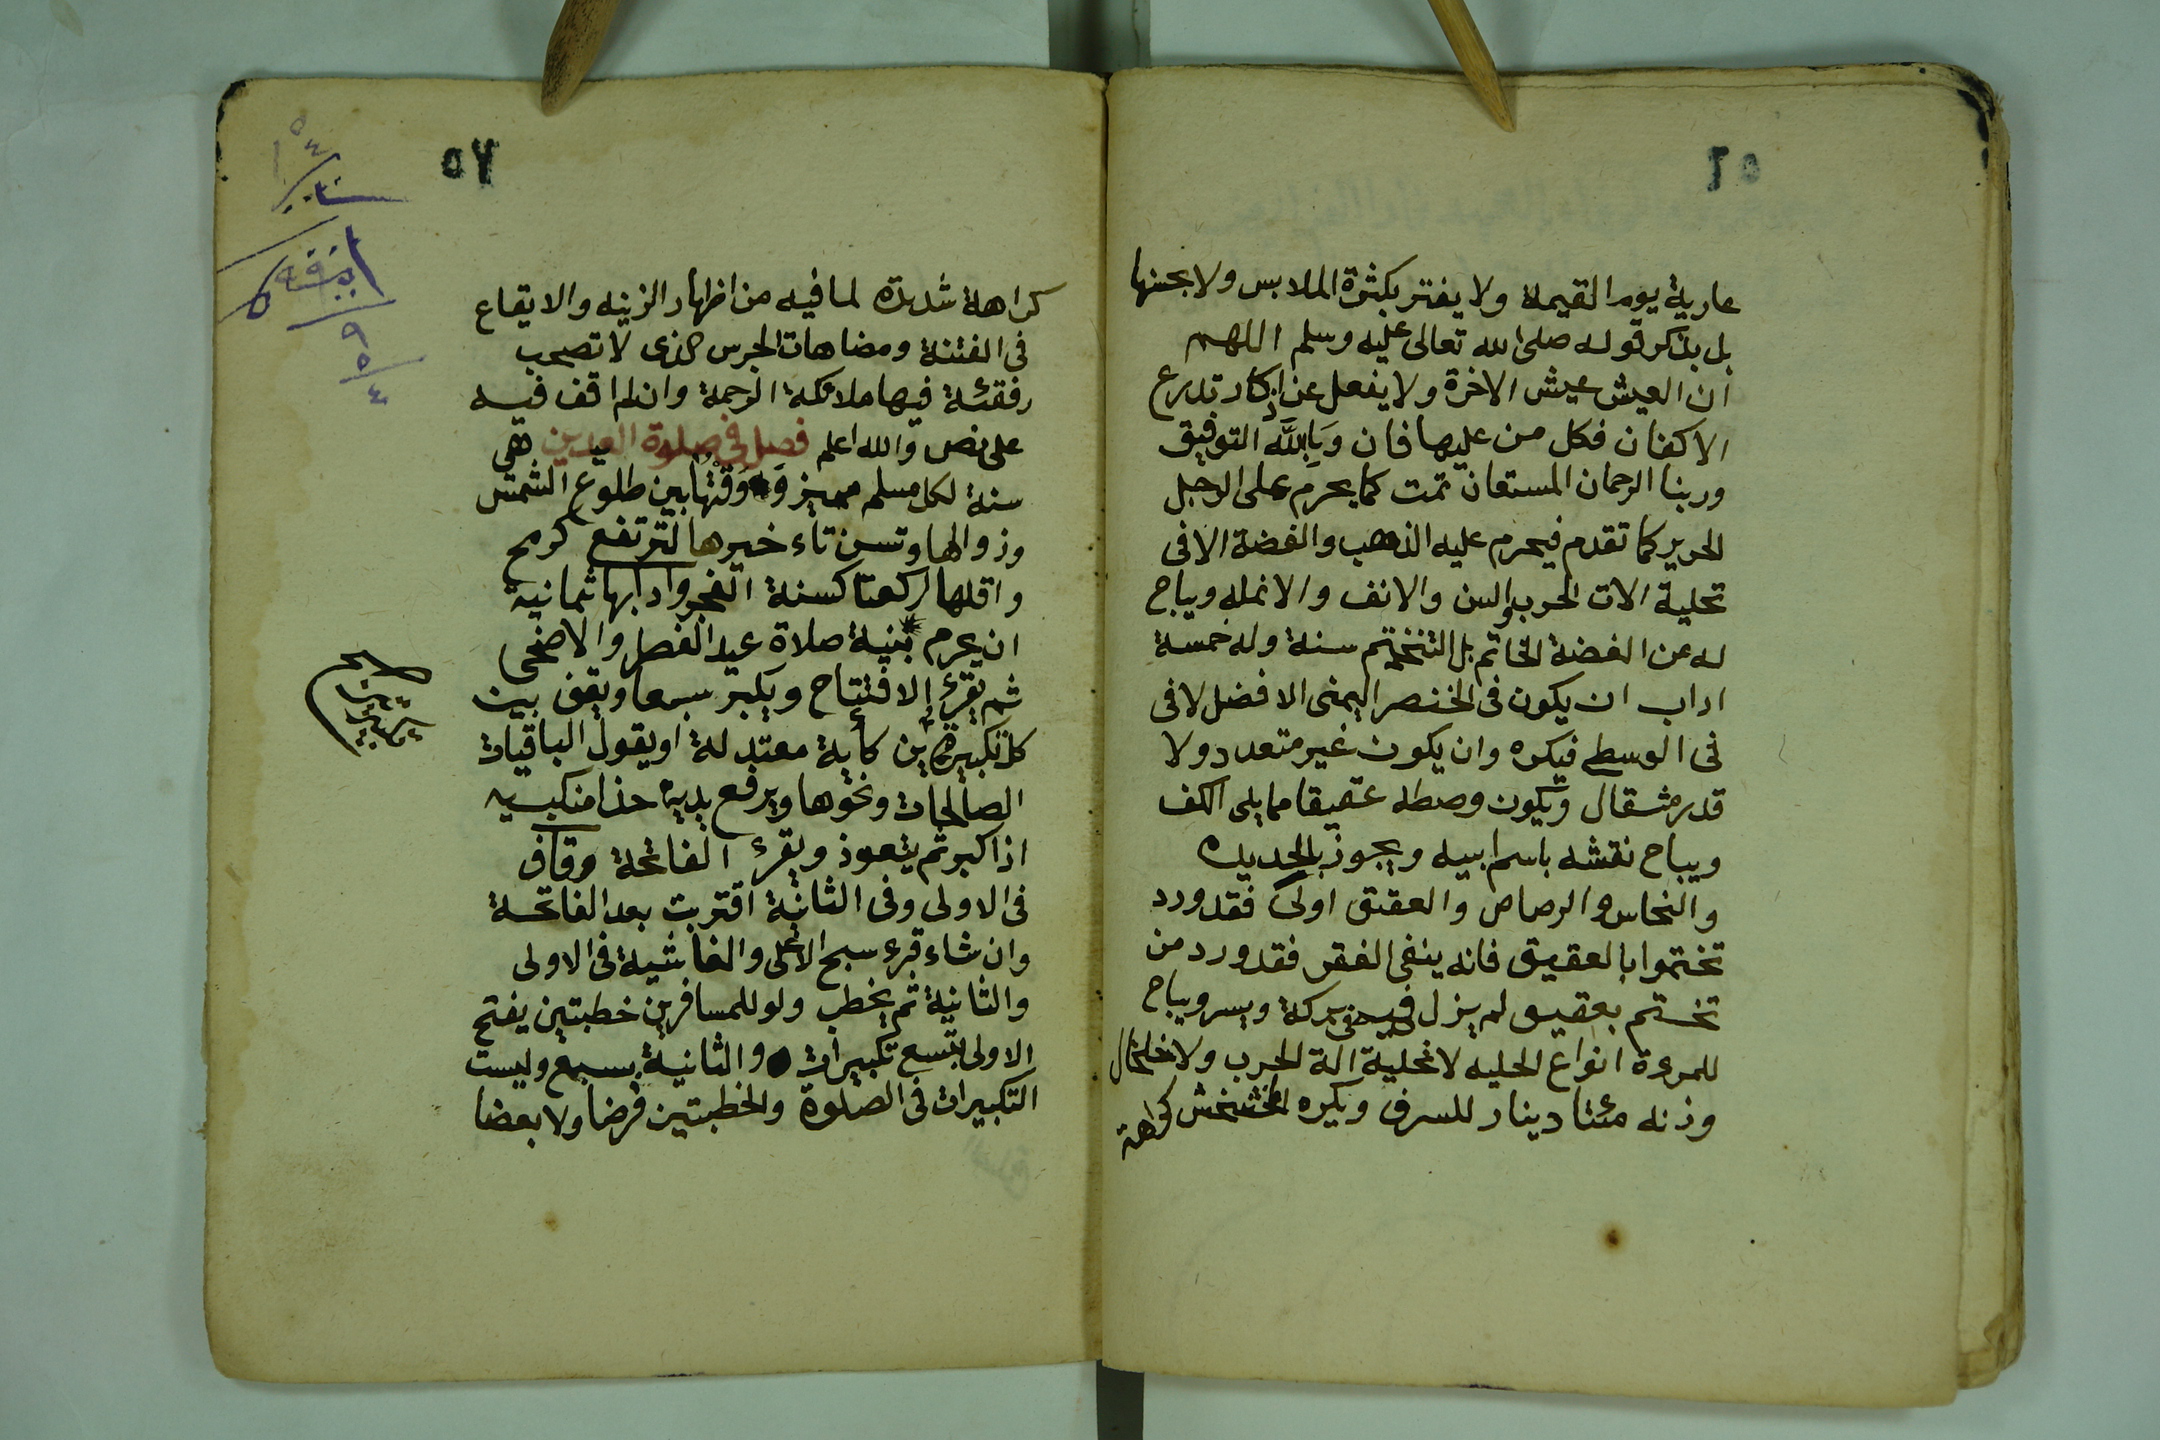 ٥٦
عارية يوم القيمة ولا يغتر بكثرة الملابس ولا بحسنها
بل يذكر قوله صلى الله تعالى عليه وسلم اللهم
ان العيش عيش الاخرة ولا يغفل عن اذكار تدرع
الاكفان فكل من عليها فان وَبِاللَّه التوفيق
وربنا الرحمان المستعان تمت كما يحرم على الرجل
الحرير كما تقدم فيحرم عليه الذهب والفضة الا فى
تحلية الات الحرب والسن والانف والانمله ويباح
له من الفضة الخاتم بل التختم سنة وله خمسة
اداب ان يكون فى الخنصر اليمنى الافضل لا فى
فى الوسطى فيكره وان يكون غير متعدد ولا
قدر مثقال ويكون وصطه عقيقا مما يلى الكف
ويباح نقشه باسم ابيه ويجوز بالحديد
والنحاس والرصاص والعقيق اولى فقد ورد
تختموا بالعقيق فانه ينفى الفقر فقد ورد من
تختم بعقيق لم يزل فى بركة ويسر ويباح
للمرءة انواع الحليه لا تحلية الة الحرب ولا خلخال
وزنه مئتا دينار للسرف ويكره الخشخش كراهة
٥٧
كراهة شديدة لما فيه من اظهار الزينه والايقاع
فى الفتنة ومضاهات الجرس الذى لا تصحب
رفقئة فيها ملائكة الرحمة وان لم اقف فيه
على نص والله اعلم فصل فى صلوة العيدين هى
سنة لكل مسلم مميز ووقتها بين طلوع الشمس
وزوالها وتسن تاءخيرها لترتفع كرمح
واقلها ركعتا كسنة الفجر وادابها ثمانية
ان يحرم بنية صلاة عيد الفطر والاضحى
ثم يقرئ الافتتاح ويكبر سبعا ويقف بين
كل تكبيرتين كأية معتدلة او يقول الباقيات
الصالحات ونحوها ويرفع يديه حذا منكبيه
اذا كبر ثم يتعوذ ويقرء الفاتحة وقاف
فى الاولى وفى الثانية اقتربت بعد الفاتحة
وان شاء قرء سبح الاعلى والغاشية فى الاولى
والثانية ثم يخطب ولو للمسافرين خطبتين يفتح
الاولى بتسع تكبيرات والثانية بسبع وليست
التكبيرات فى الصلوة والخطبتين فرضا ولا بعضا